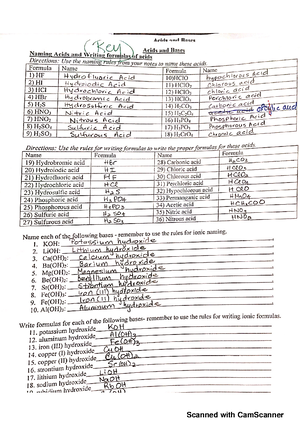 Acids and Bases
(Key)
Acids and Bases
Naming Acids and Writing formulas of acids
Directions: Use the naming rules from your notes to name these acids.
Formula Name Formula Name
1) HF Hydrofluoric Acid 10) HClO hypochlorous acid
2) HI Hydroiodic Acid 11) HClO₂ chlorous acid
3) HCl Hydrochloric Acid 12) HClO₃ chloric acid
4) HBr Hydrobromic Acid 13) HClO₄ Perchloric acid
5) H₂S Hydrosulfuric Acid 14) H₂CO₃ Carbonic acid
6) HNO₃ Nitric Acid
7) HNO₂ Nitrous Acid 16) H₃PO₄ Phosphoric Acid
8) H₂SO₄ Sulfuric Acid 17) H₃PO₃ Phosphorous Acid
9) H₂SO₃ Sulfurous Acid 18) H₂CrO₄ Chromic acid
Directions: Use the rules for writing formulas to write the proper formulas for these acids.
Name Formula Name Formula
19) Hydrobromic acid HBr 28) Carbonic acid H₂CO₃
20) Hydroiodic acid HI 29) Chloric acid HClO₃
21) Hydrofluoric acid HF 30) Chlorous acid HClO₂
22) Hydrochloric acid HCl 31) Perchloric acid HClO₄
23) Hydrosulfuric acid H₂S 32) Hypochlorous acid HClO
24) Phosphoric acid H₃PO₄ 33) Permanganic acid
25) Phosphorous acid H₃PO₃ 34) Acetic acid
26) Sulfuric acid H₂SO₄ 35) Nitric acid HNO₃
27) Sulfurous acid H₂SO₃ 36) Nitrous acid HNO₂
Name each of the following bases - remember to use the rules for ionic naming.
1. KOH: Potassium hydroxide
2. LiOH: Lithium hydroxide
3. Ca(OH)₂: Calcium hydroxide
4. Ba(OH)₂: Barium hydroxide
5. Mg(OH)₂: Magnesium hydroxide
6. Be(OH)₂: beryllium hydroxide
7. Sr(OH)₂: Strontium hydroxide
8. Fe(OH)₂: Iron (II) hydroxide
9. Fe(OH)₃: Iron (III) hydroxide
10. Al(OH)₃: Aluminum hydroxide
Write formulas for each of the following bases - remember to use the rules for writing ionic formulas.
11. potassium hydroxide KOH
12. aluminum hydroxide Al(OH)₃
13. iron (III) hydroxide Fe(OH)₃
14. copper (I) hydroxide CuOH
15. copper (II) hydroxide Cu(OH)₂
16. strontium hydroxide Sr(OH)₂
17. lithium hydroxide LiOH
18. sodium hydroxide NaOH
hydroxide RbOH
Scanned with CamScanner